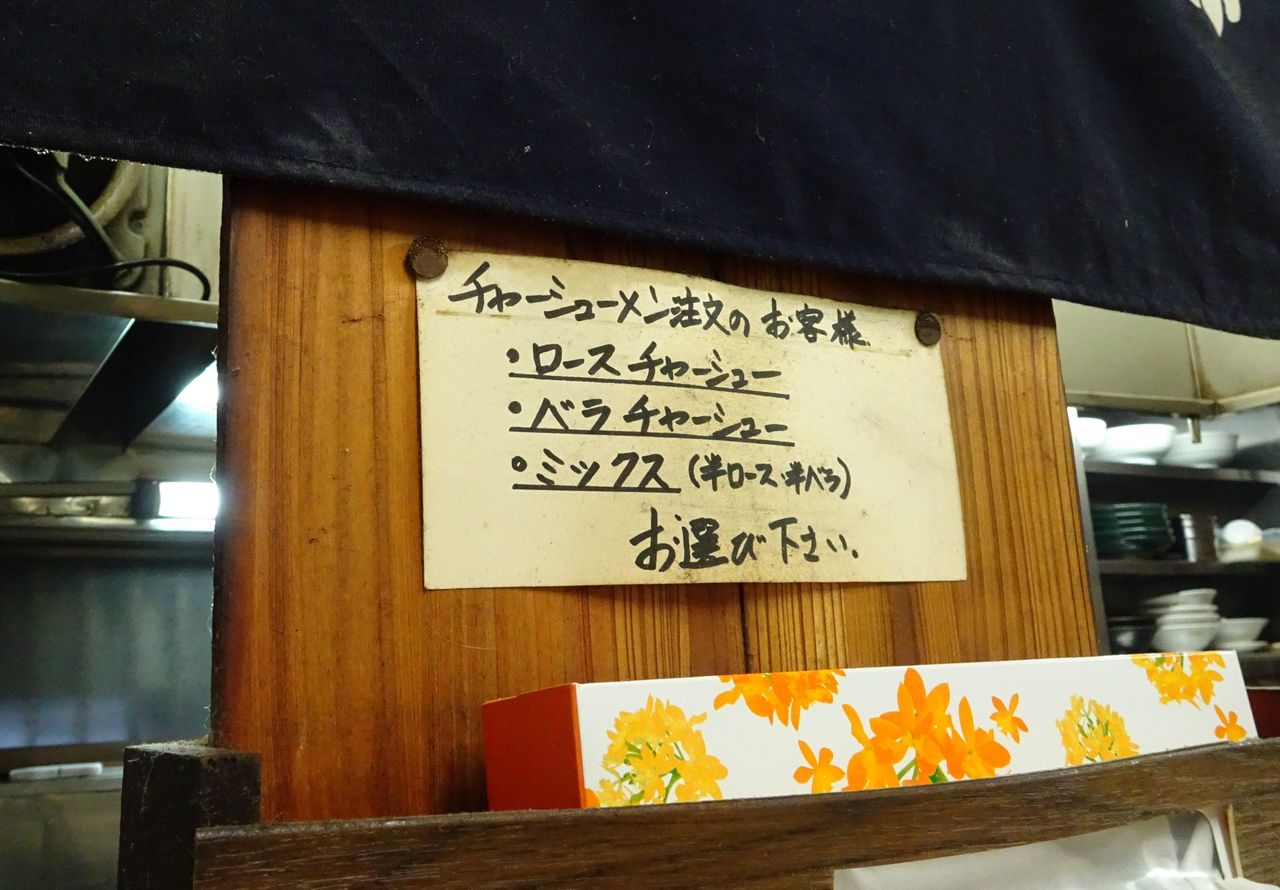 チャーシューメン注文のお客様
・ロースチャーシュー
・バラチャーシュー
・ミックス(半ロース・半バラ)
お選び下さい.